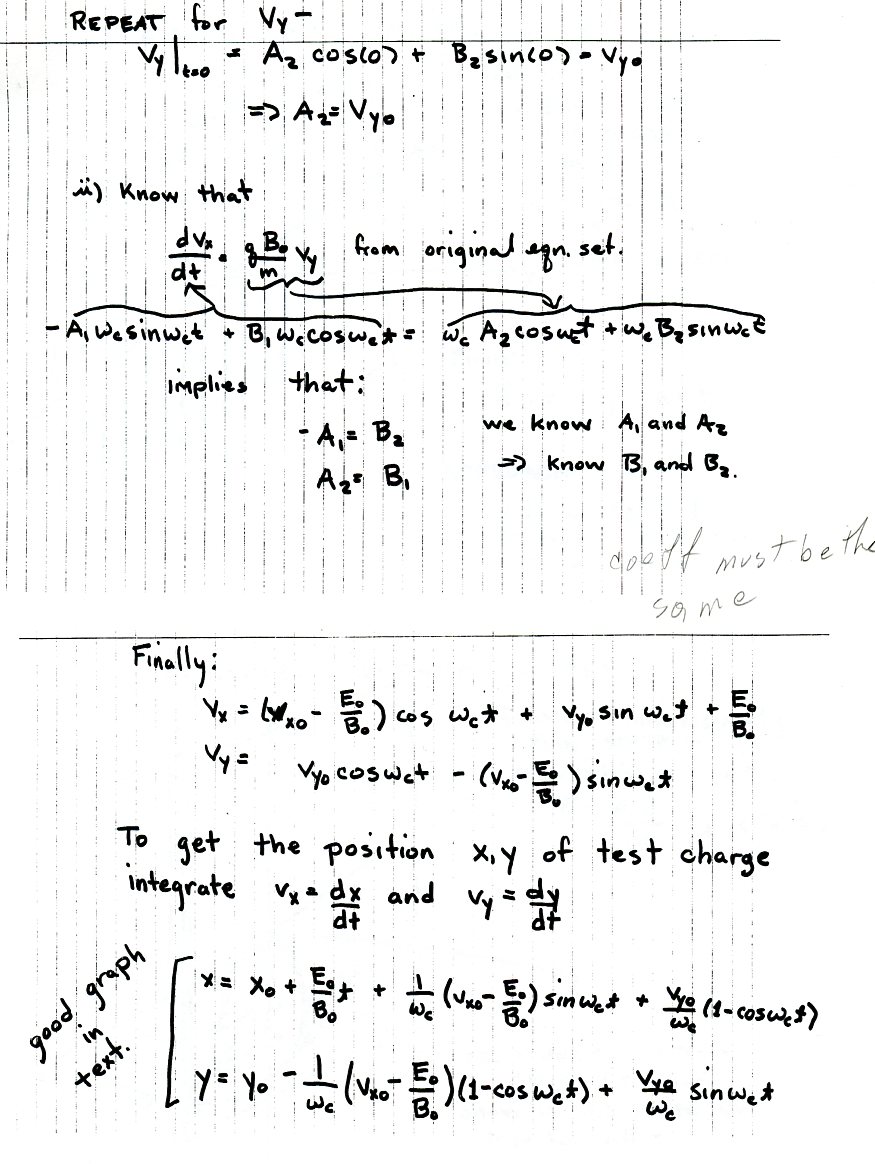 REPEAT for Vy –
Vy|t=0 = A₂ cos(0) + B₂ sin(0) = Vyo
⇒ A₂ = Vyo
ii) Know that
dVx/dt = qB₀/m Vy from original eqn. set.
-A₁ωc sinωct + B₁ωc cosωct = ωc A₂ cosωct + ωc B₂ sinωct
implies that:
-A₁ = B₂ we know A₁ and A₂
A₂ = B₁ ⇒ know B₁ and B₂.
coeff must be the
same
Finally:
Vx = (Vxo - E₀/B₀) cos ωct + Vyo sin ωct + E₀/B₀
Vy = Vyo cos ωct - (Vxo - E₀/B₀) sin ωct
To get the position x,y of test charge
integrate Vx = dx/dt and Vy = dy/dt
good graph
in
text.
x = x₀ + E₀/B₀ t + 1/ωc (Vxo - E₀/B₀) sin ωct + Vyo/ωc (1-cosωct)
y = y₀ - 1/ωc (Vxo - E₀/B₀)(1-cosωct) + Vyo/ωc sin ωct